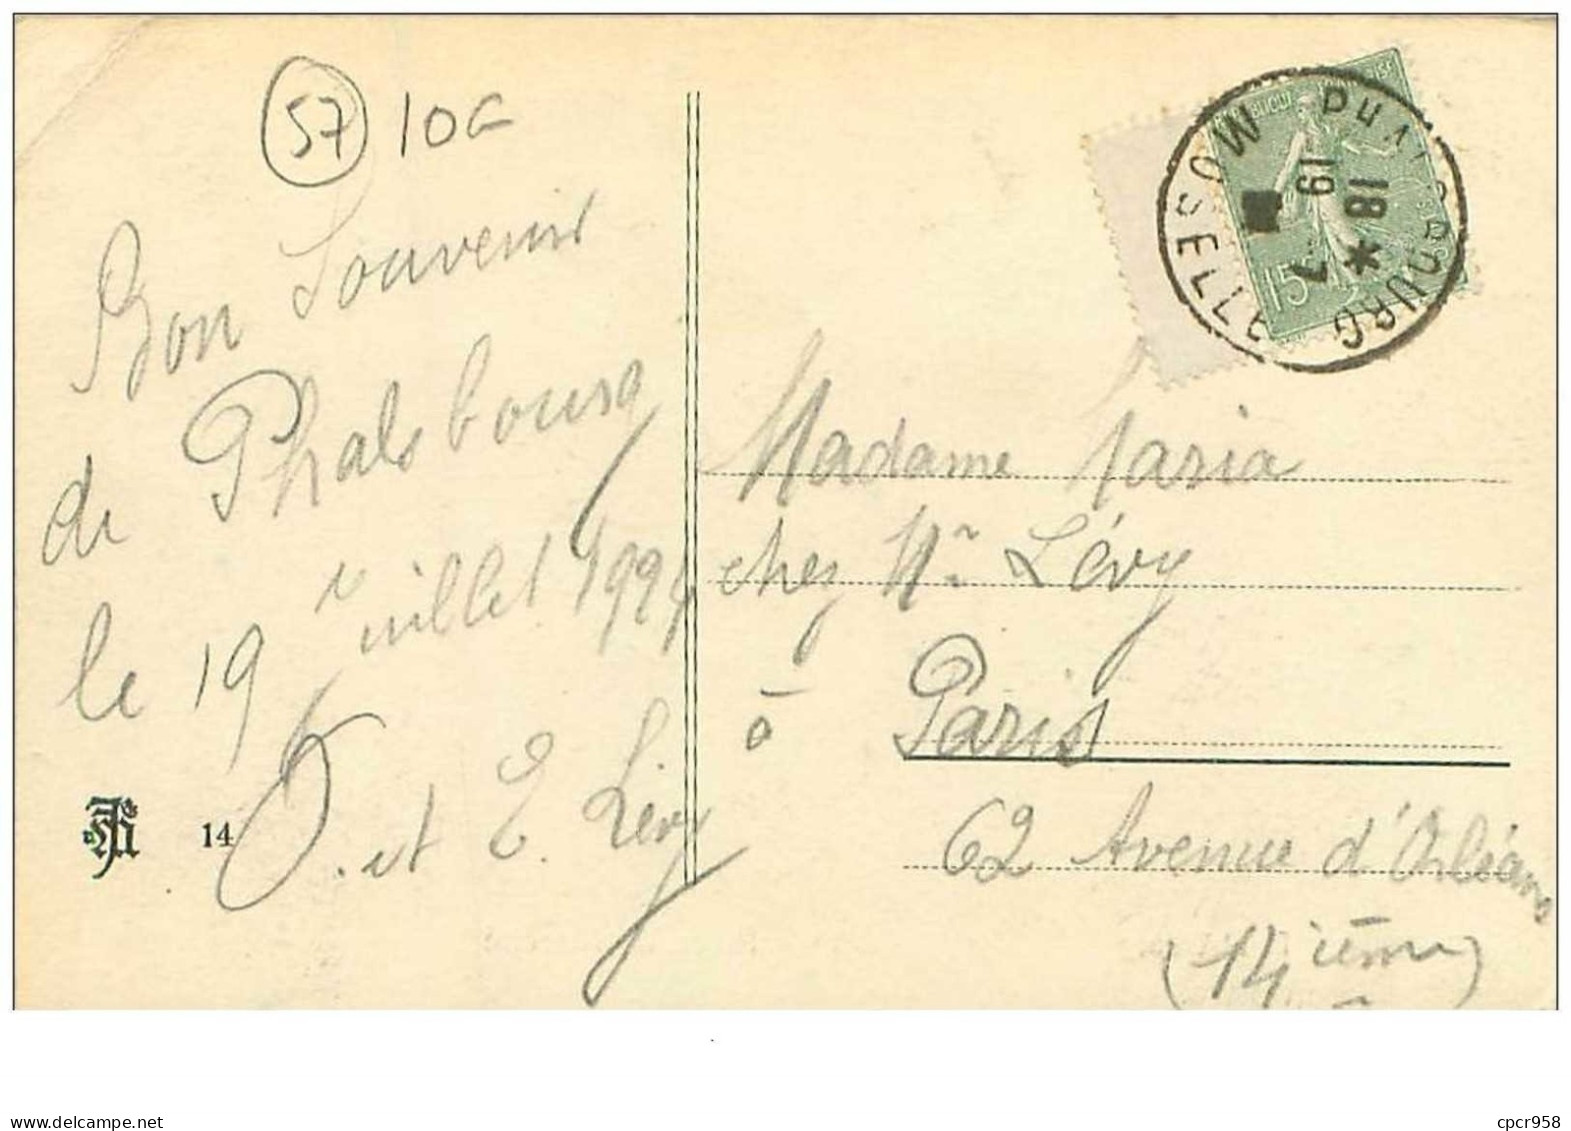 57 10G
Bon Souvenir
de Phalsbourg
le 19 Juillet
et E. Lévy
14
PHALSBOURG
MOSELLE
18 *
19 7
15
Madame Maria
chez Mr Lévy
à Paris
62 Avenue d'Orléans
(14 ième)
www.delcampe.net
cpcr958